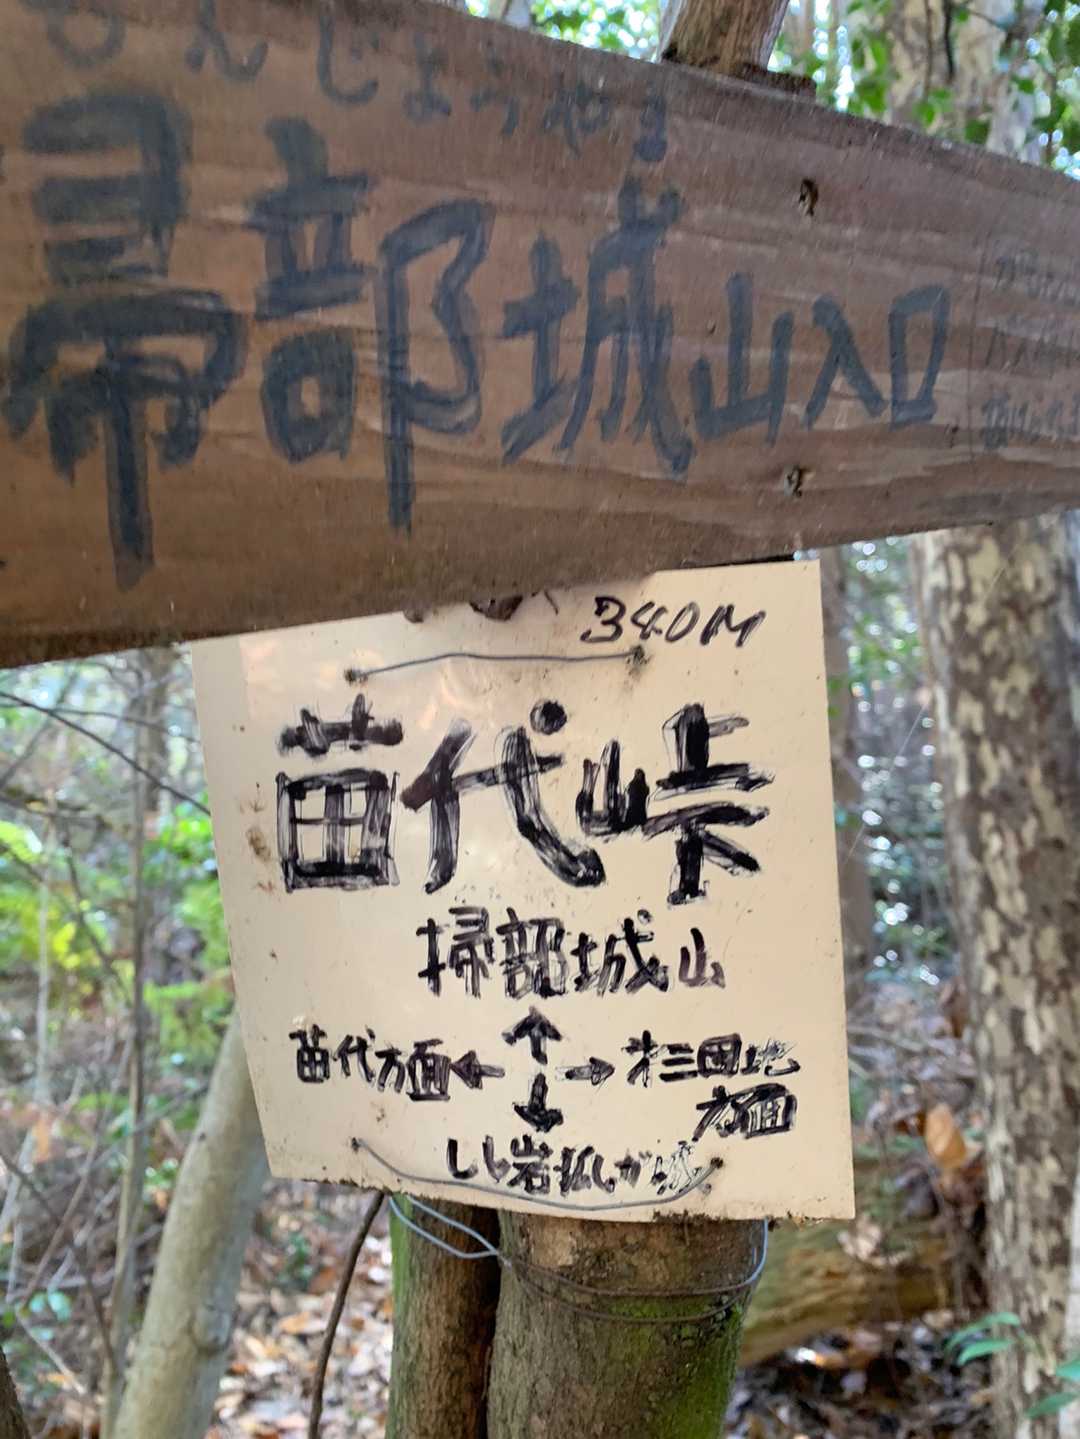 もんじょうやま
掃部城山入口
340M
苗代峠
掃部城山
↑
苗代方面← →㐧三団地
方面
↓
しし岩狐しが城